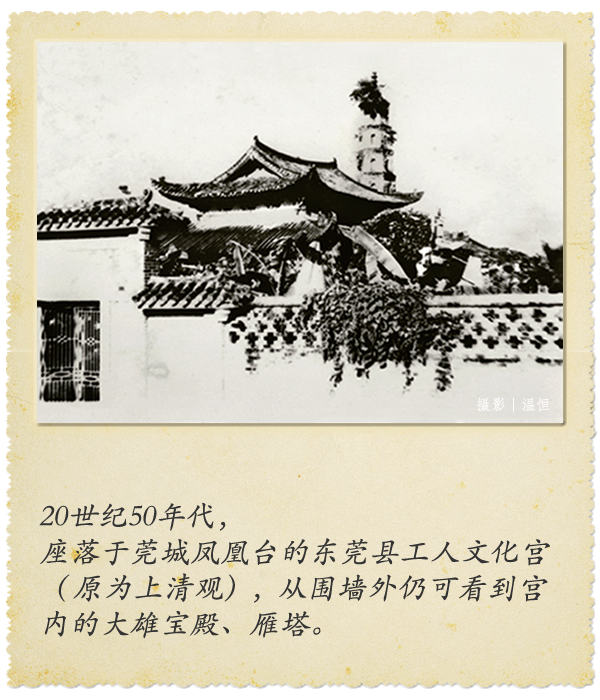 摄影｜温恒
20世纪50年代，
座落于莞城凤凰台的东莞县工人文化宫
（原为上清观），从围墙外仍可看到宫
内的大雄宝殿、雁塔。